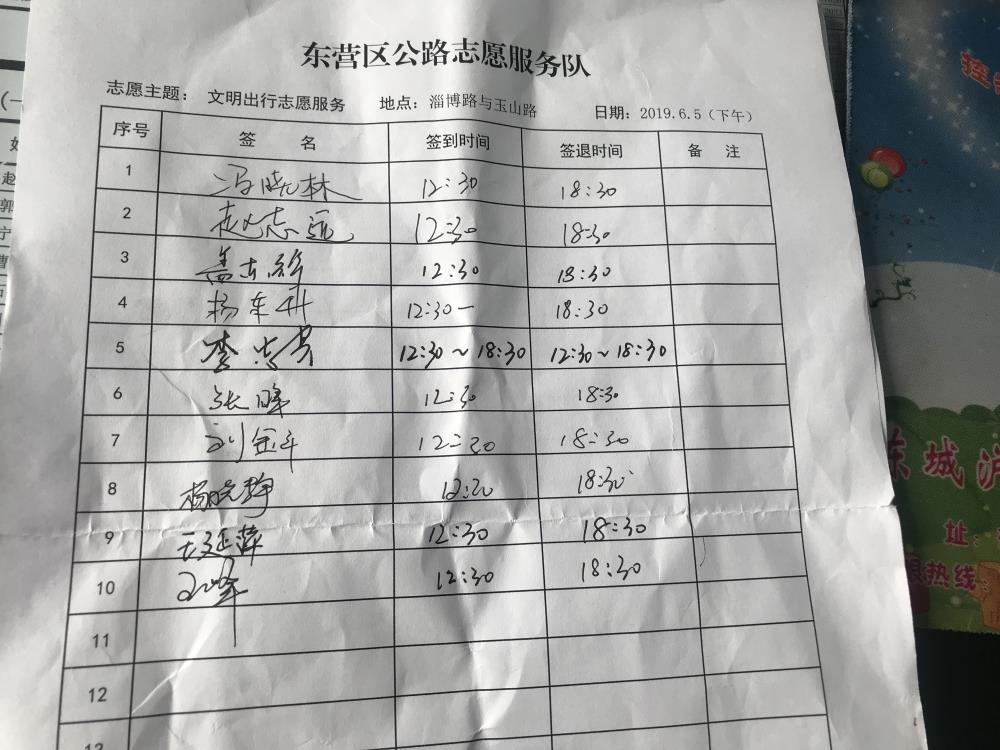 东营区公路志愿服务队
志愿主题: 文明出行志愿服务 地点: 淄博路与玉山路 日期: 2019.6.5（下午）
序号 签 名 签到时间 签退时间 备 注
1 冯晓林 12:30 18:30
2 赵志远 12:30 18:30
3 12:30 18:30
4 杨东升 12:30一 18:30
5 李 12:30~18:30 12:30~18:30
6 张晖 12:30 18:30
7 刘金平 12:30 18:30
8 杨晓静 12:30 18:30
9 王延萍 12:30 18:30
10 王峰 12:30 18:30
11
12
13
东城
址:
热线